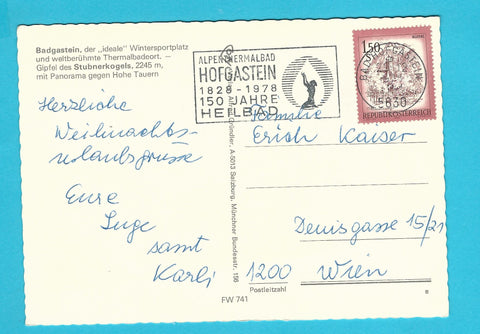 Badgastein, der „ideale" Wintersportplatz
und weltberühmte Thermalbadeort. —
Gipfel des Stubnerkogels, 2245 m,
mit Panorama gegen Hohe Tauern
ALPENTHERMALBAD
HOFGASTEIN
1828-1978
150 JAHRE
HEILBAD
5630
1.50
REPUBLIK ÖSTERREICH
Herzliche
Weihnachts-
urlaubsgrüsse
Eure
Inge
samt
Karli
Familie
Erich Kaiser
Denisgasse 15/21
1200 Wien
Postleitzahl
Gründler, A-5013 Salzburg, Münchner Bundesstr. 156
FW 741